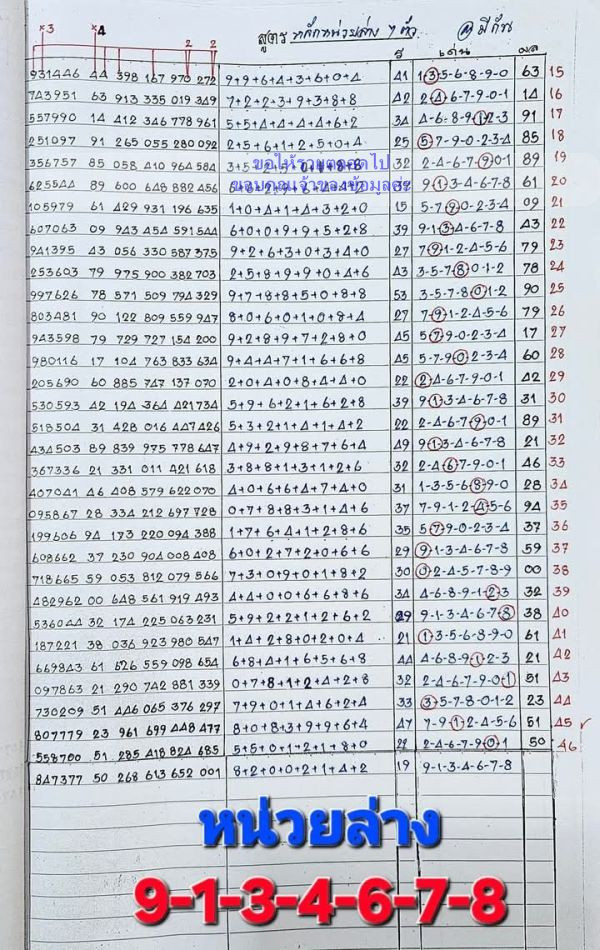 ×3 ×4 2 2
สูตร หลักหน่วยล่าง 7 ตัว @มีกัน
เด่น ผล
931446 44 398 167 970 272 9+9+6+4+3+6+0+4 41 1-3-5-6-8-9-0 63 15
743951 63 913 335 019 349 7+2+2+3+9+3+8+8 42 2-4-6-7-9-0-1 14 16
557990 14 412 346 778 961 5+5+4+4+4+4+6+2 34 4-6-8-9-1-2-3 91 17
251097 91 265 055 280 092 2+5+6+1+2+5+0+4 25 5-7-9-0-2-3-4 85 18
ขอให้รวยตลอดไป
356757 85 058 410 964 584 32 2-4-6-7-9-0-1 89 19
625544 89 600 648 882 456 39 9-1-3-4-6-7-8 61 20
105979 61 429 931 196 635 1+0+4+1+4+3+2+0 15 5-7-9-0-2-3-4 09 21
607063 09 943 454 591 544 6+0+0+9+9+5+2+8 39 9-1-3-4-6-7-8 43 22
941395 43 056 330 587 375 9+2+6+3+0+3+4+0 27 7-9-1-2-4-5-6 79 23
253603 79 975 900 382 703 2+5+8+9+9+0+4+6 43 3-5-7-8-0-1-2 78 24
997626 78 571 509 794 329 9+7+8+8+5+0+8+8 53 3-5-7-8-0-1-2 90 25
803481 90 122 809 559 947 8+0+6+0+1+0+8+4 27 7-9-1-2-4-5-6 79 26
943598 79 729 727 154 200 9+2+8+9+7+2+8+0 45 5-7-9-0-2-3-4 17 27
980116 17 104 763 833 634 9+4+4+7+1+6+6+8 45 5-7-9-0-2-3-4 60 28
205690 60 885 747 137 070 2+0+4+0+8+4+4+0 22 2-4-6-7-9-0-1 42 29
530593 42 194 364 421 734 5+9+6+2+1+6+2+8 39 9-1-3-4-6-7-8 31 30
518504 31 428 016 447 426 5+3+2+1+4+1+4+2 22 2-4-6-7-9-0-1 89 31
434503 89 839 975 778 647 4+9+2+9+8+7+6+4 49 9-1-3-4-6-7-8 21 32
367336 21 331 011 421 618 3+8+8+1+3+1+2+6 32 2-4-6-7-9-0-1 46 33
407041 46 408 579 622 070 4+0+6+6+4+7+4+0 31 1-3-5-6-8-9-0 28 34
095867 28 334 212 697 728 0+7+8+8+3+1+4+6 37 7-9-1-2-4-5-6 94 35
199606 94 173 220 094 388 1+7+6+4+1+2+8+6 35 5-7-9-0-2-3-4 37 36
608662 37 230 904 008 408 6+0+2+7+2+0+6+6 29 9-1-3-4-6-7-8 59 37
718665 59 053 812 079 566 7+3+0+9+0+1+8+2 30 0-2-4-5-7-8-9 00 38
482962 00 648 561 919 493 4+4+0+0+6+6+8+6 34 4-6-8-9-1-2-3 32 39
536044 32 174 225 063 231 5+9+2+2+1+2+6+2 29 9-1-3-4-6-7-8 38 40
187221 38 036 923 980 547 1+4+2+8+0+2+0+4 21 1-3-5-6-8-9-0 61 41
669843 61 626 559 098 654 6+8+4+1+6+5+6+8 44 4-6-8-9-1-2-3 21 42
097863 21 290 742 881 339 0+7+8+1+2+4+2+8 32 2-4-6-7-9-0-1 51 43
730209 51 446 065 376 297 7+0+9+5+4+6+2+0 33 3-5-7-8-0-1-2 23 44
807779 23 961 699 448 477 8+0+8+3+9+9+6+4 47 7-9-1-2-4-5-6 51 45
558700 51 285 418 824 685 5+5+0+1+2+1+8+0 22 2-4-6-7-9-0-1 50 46
847377 50 268 613 652 001 8+2+0+0+2+1+4+2 19 9-1-3-4-6-7-8
หน่วยล่าง
9-1-3-4-6-7-8